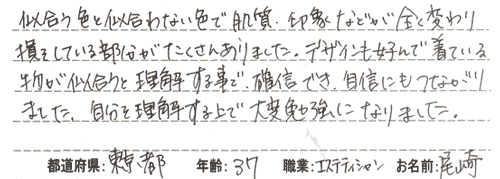 似合う色と似合わない色で肌質、印象などが全く変わり
損をしている部分がたくさんありました。デザインも好んで着ている
物が似合うと理解する事で、確信でき、自信にもつながり
ました。自分を理解する上で大変勉強になりました。
都道府県:東京都 年齢:37 職業:エステティシャン お名前:尾崎